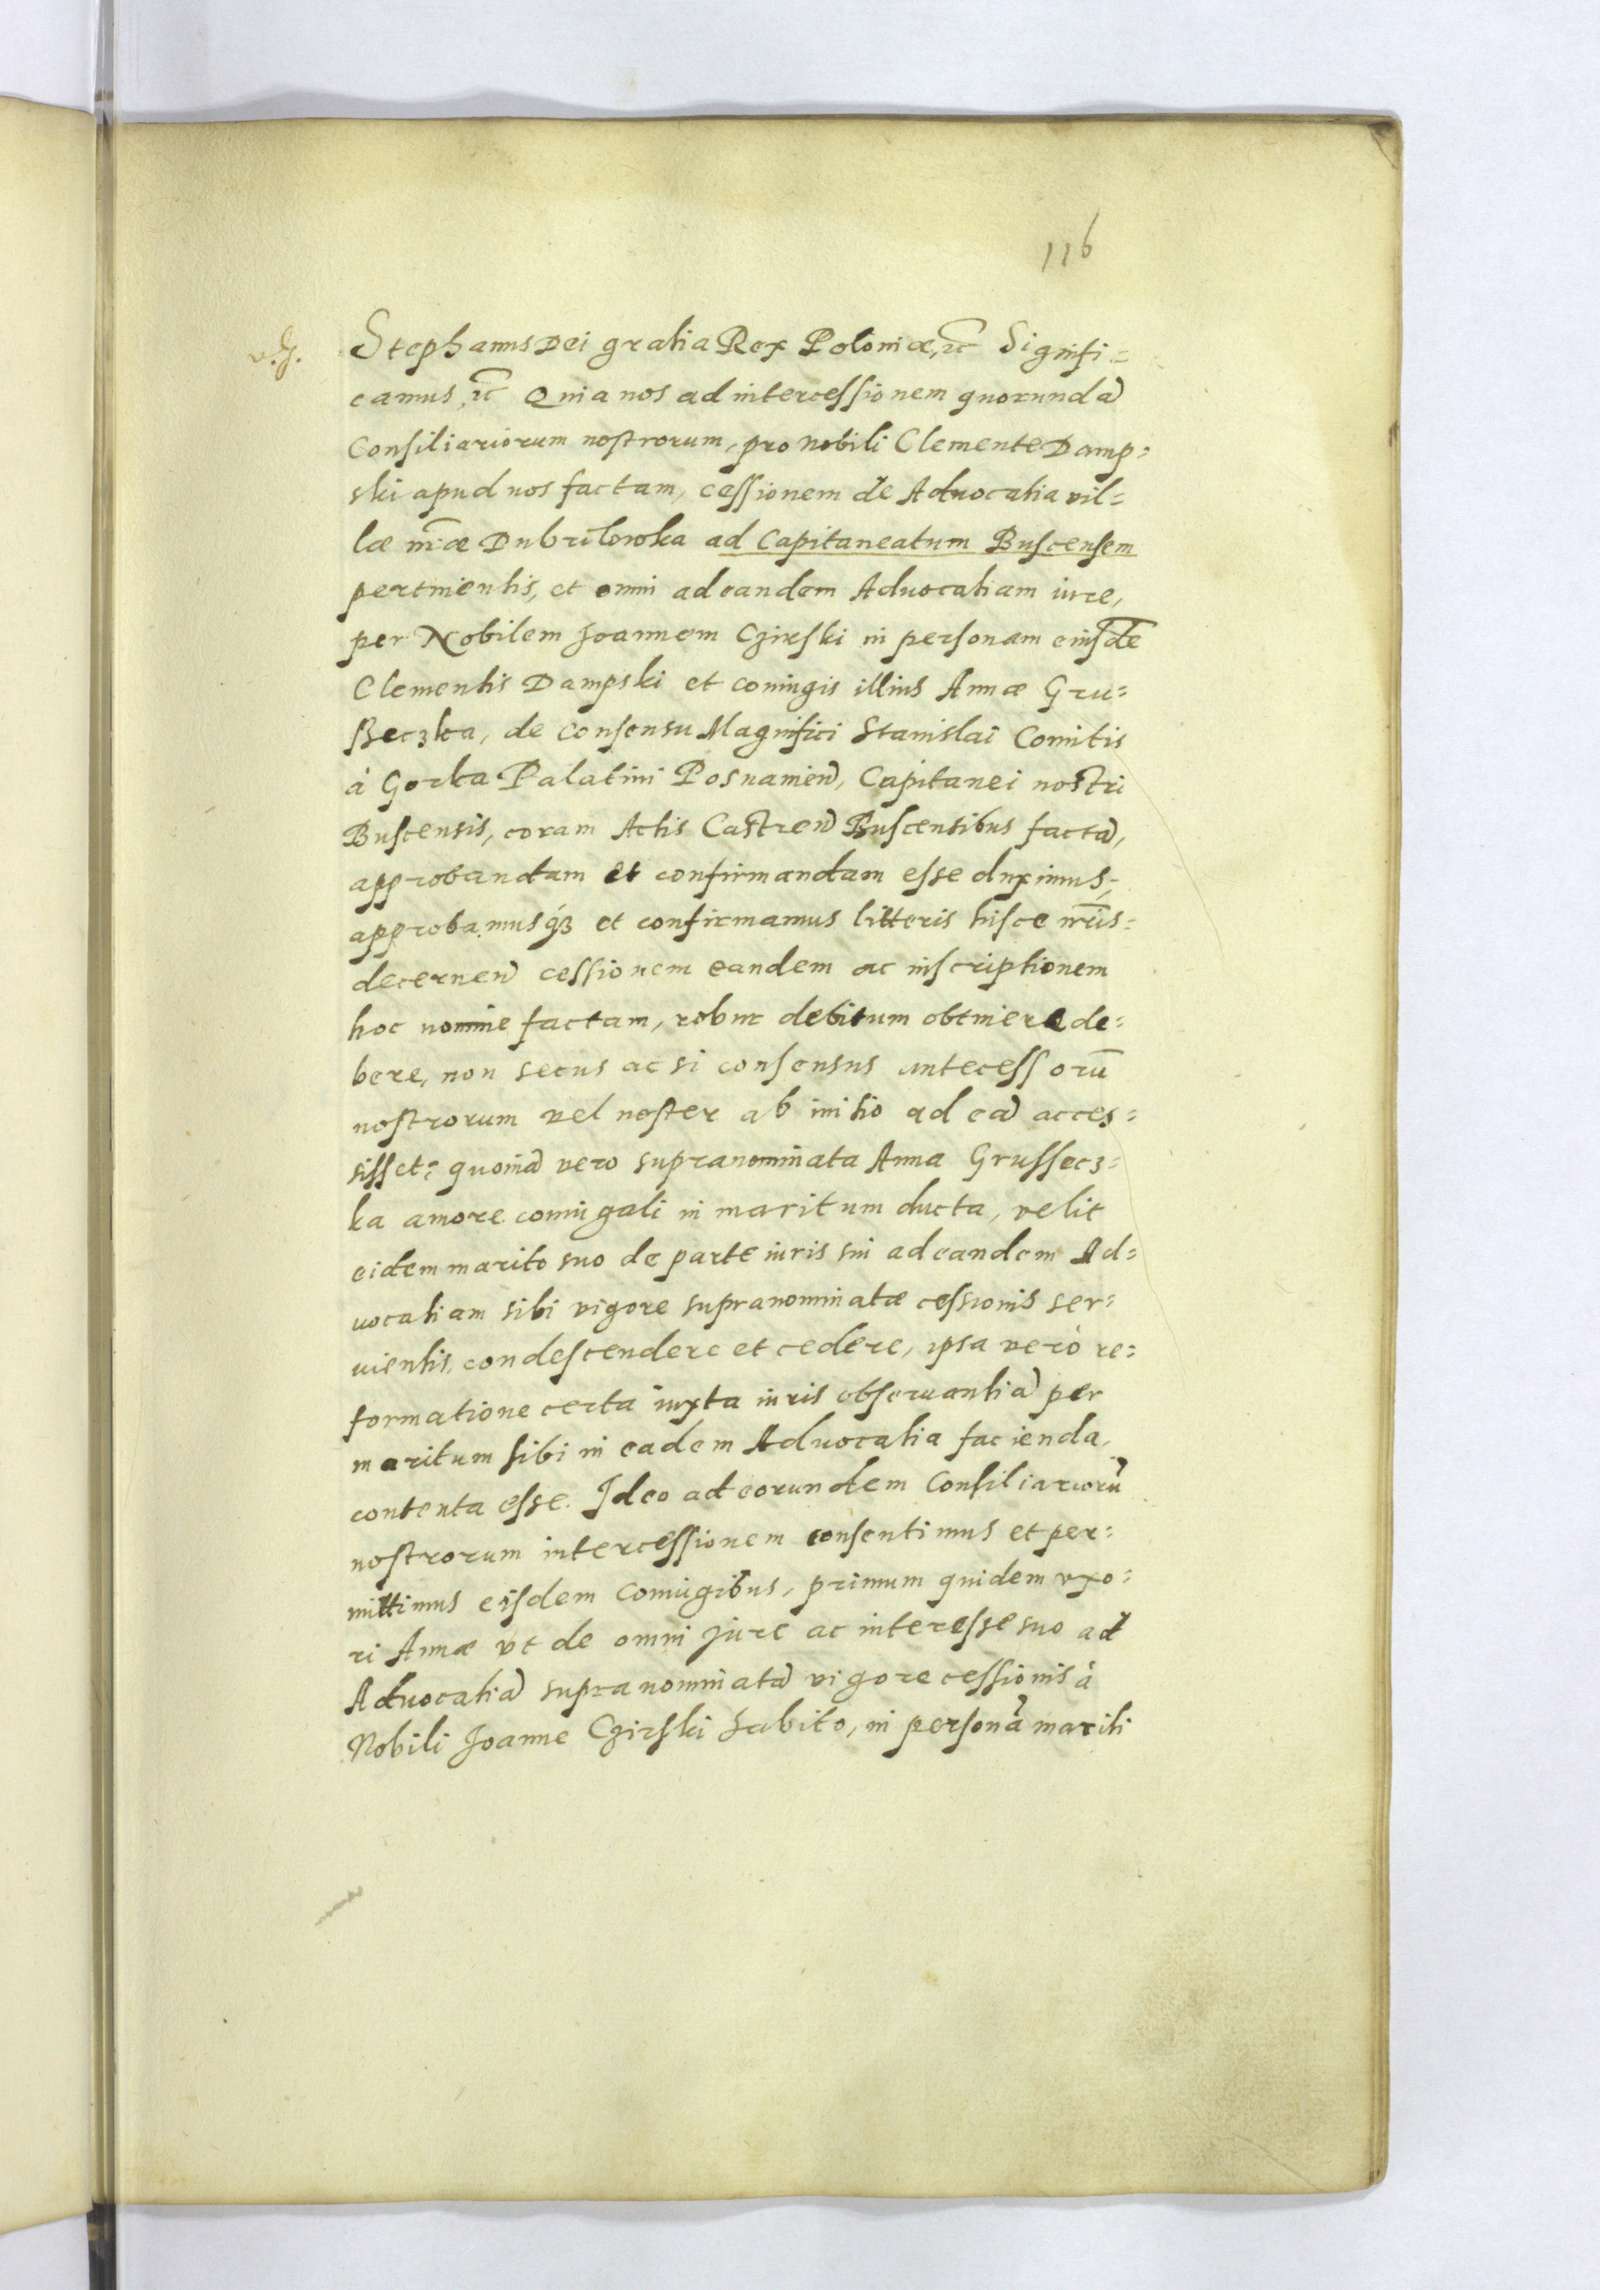 116
Stephanus Dei gratia Rex Poloniæ, ꝛc̃ Signifi=
camus, ꝛc̃ Quia nos ad intercessionem quorundã
Consiliariorum nostrorum, pro nobili Clemente Damp=
ski apud nos factam, cessionem de Aduocatia vil=
læ nr̃æ Dubrilowka ad Capitaneatum Buscensem
pertinentis, et omni ad eandem Aduocatiam iure,
per Nobilem Joannem Czirski in personam eiusdẽ
Clementis Dampski et coniugis illius Annæ Gru=
ßeczka, de consensu Magnifici Stanislai Comitis
à Gorka Palatini Posnamien̄, Capitanei nostri
Buscensis, coram Actis Castren̄ Buscensibus factã,
approbandam et confirmandam esse duximus,
approbamusq́ꝫ et confirmamus litteris hisce nr̃is
decernen̄ cessionem eandem ac inscriptionem
hoc nomine factam, robur debitum obtinere de=
bere, non secus ac si consensus antecessorũ
nostrorum vel noster ab initio ad eã acces=
sisset: quoniã vero supranominata Anna Grussecz=
ka amore coniugali in maritum ducta, velit
eidem marito suo de parte iuris sui ad eandem Ad=
uocatiam sibi vigore supranominatæ cessionis ser=
uientis, condescendere et cedere, ipsa verò re=
formatione certa iuxta iuris obseruantiã per
maritum sibi in eadem Aduocatia facienda,
contenta esse. Ideo ad eorundem Consiliariorũ
nostrorum intercessionem consentimus et per=
mittimus eisdem coniugibus, primum quidem vxo=
ri Annæ vt de omni jure ac interesse suo ad
Aduocatiã supranominatã vigore cessionis à
Nobili Joanne Czirski habito, in personã mariti